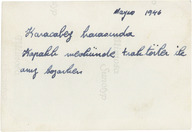 Mayıs 1946
Karacabey harasında
Kapaklı mevkiinde traktörler ile
anız bozarken